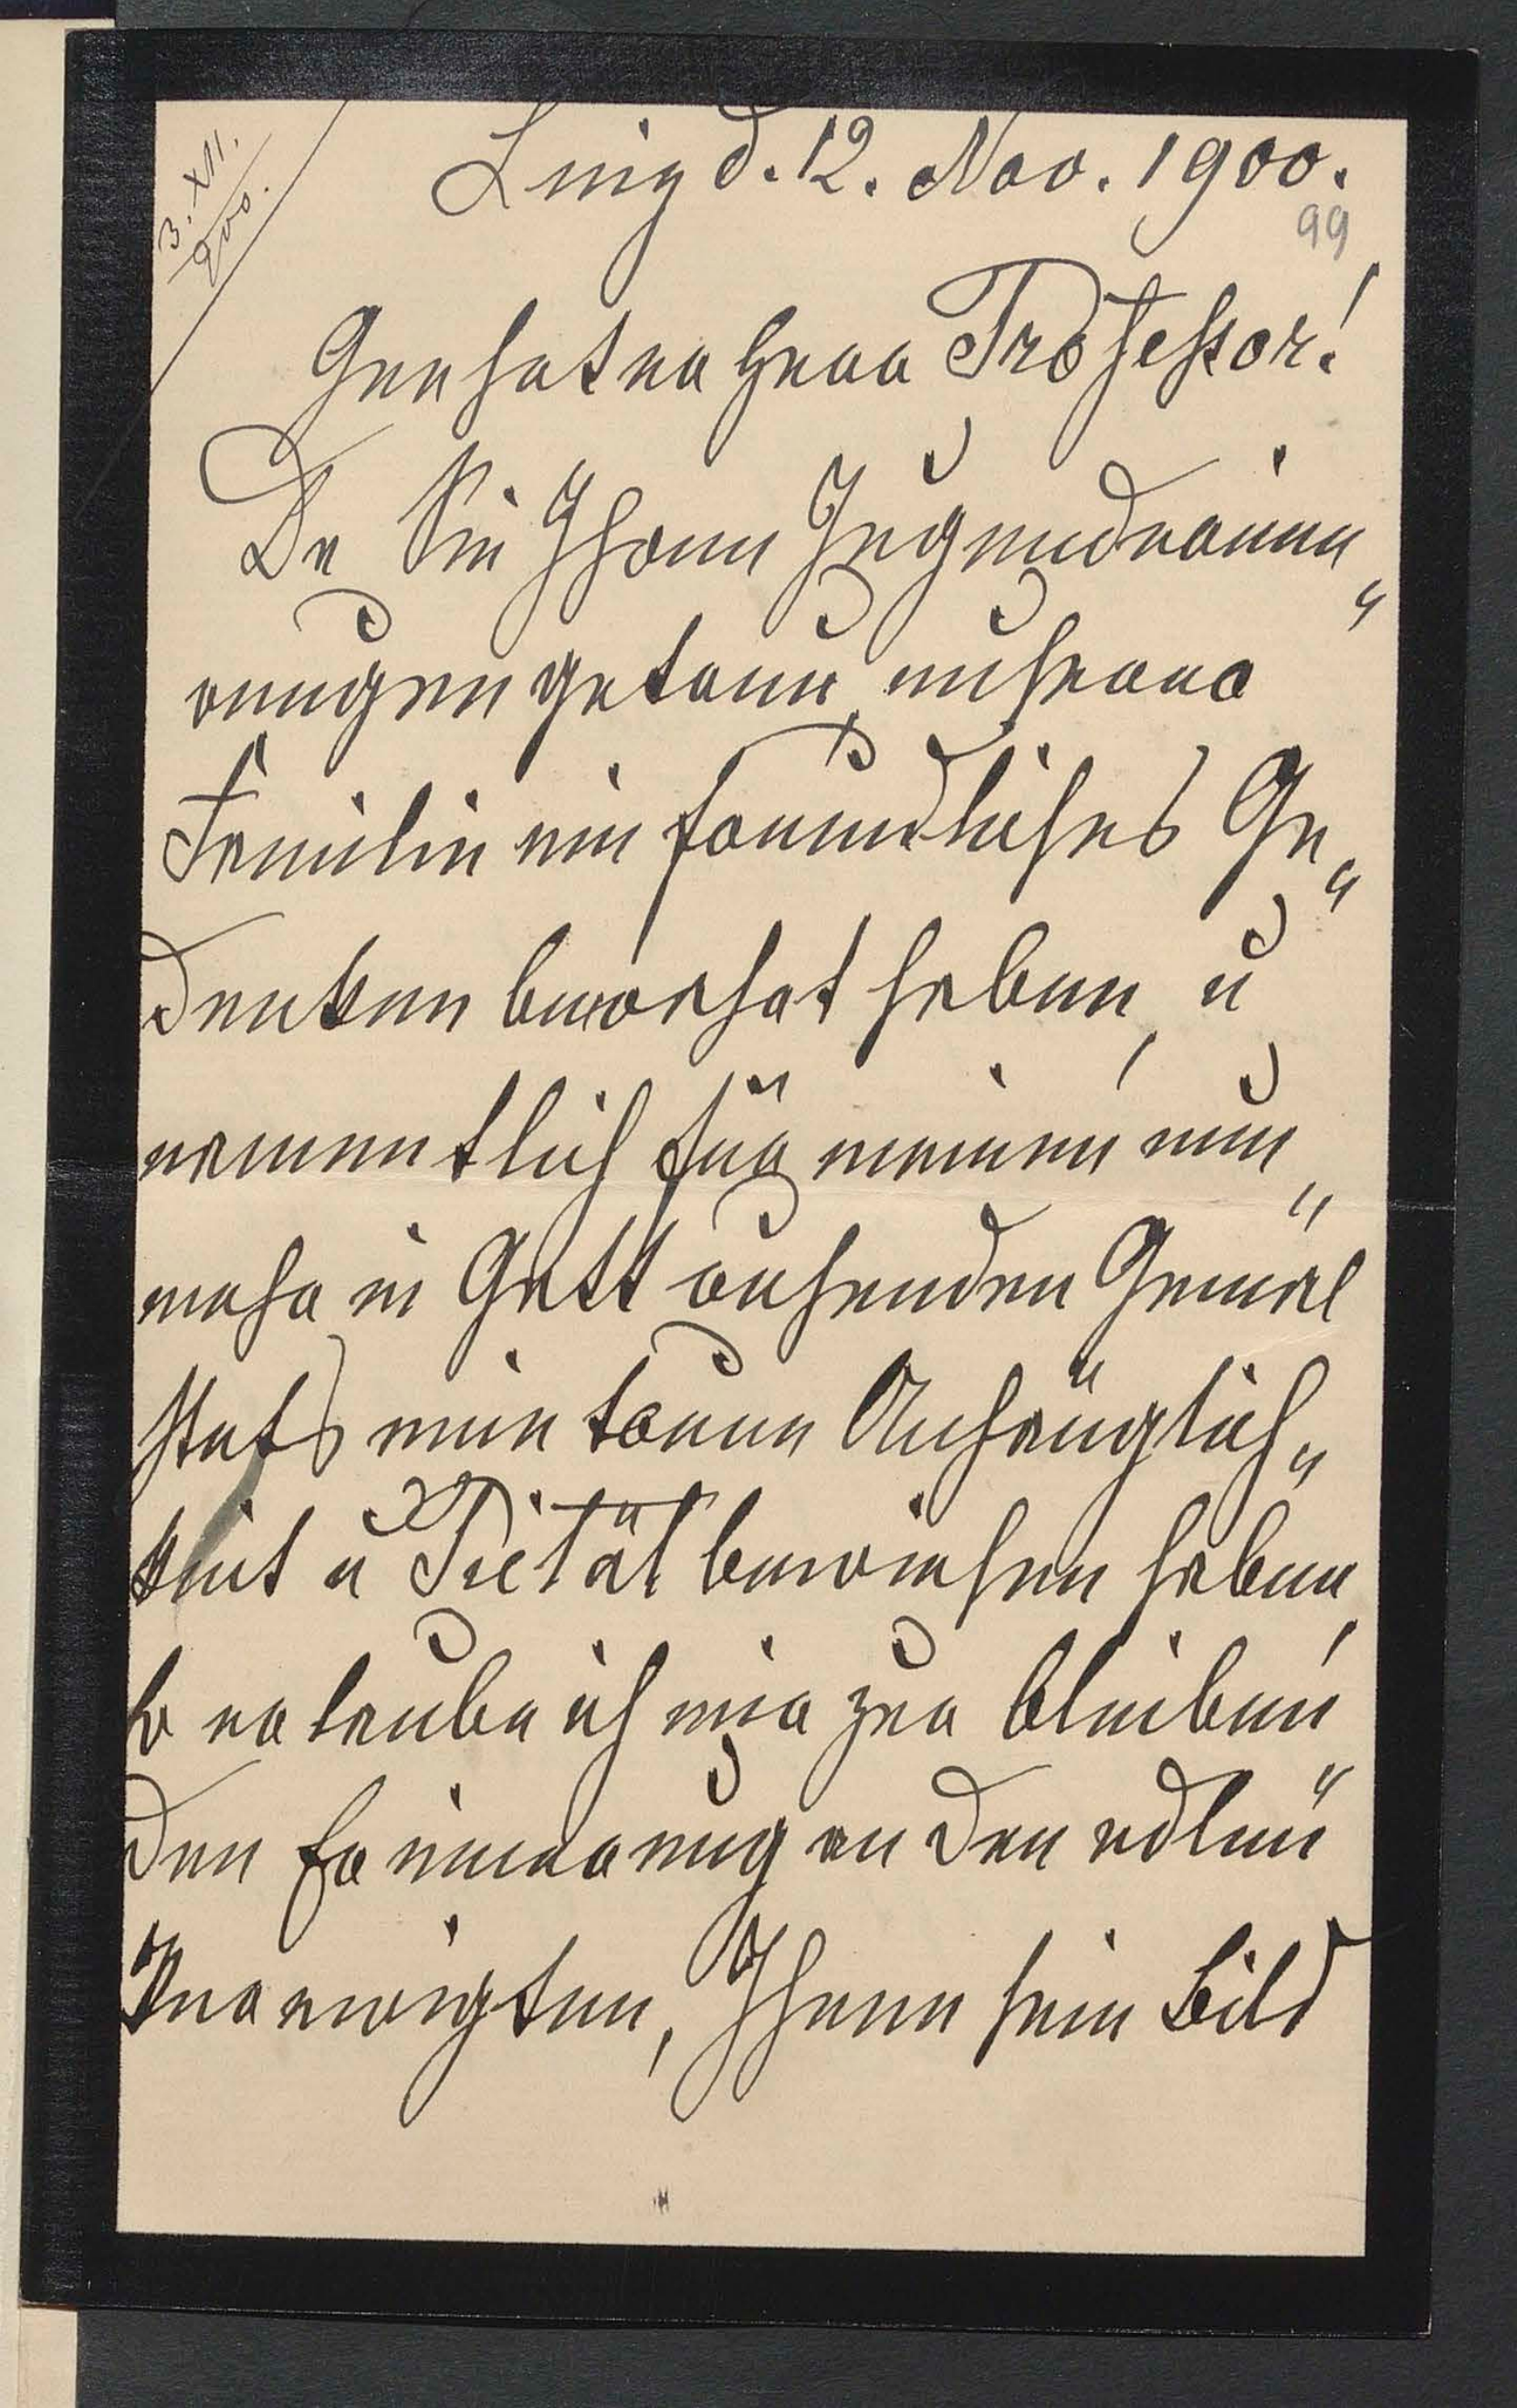 3. XII.
900.
Linz d. 12. Nov. 1900.
99
Geehrter Herr Professor!
Da Sie Ihren Jugenderinne„
rungen getreu, unserer
Familie ein freundliches Ge„
denken bewahrt haben, u
namentlich für meinen nun„
mehr in Gott ruhenden Gemal
stets eine treue Anhänglich„
keit u Pietät bewiesen haben,
so erlaube ich mir zur bleiben„
den Erinnerung an den edlen
Verewigten, Ihnen sein Bild